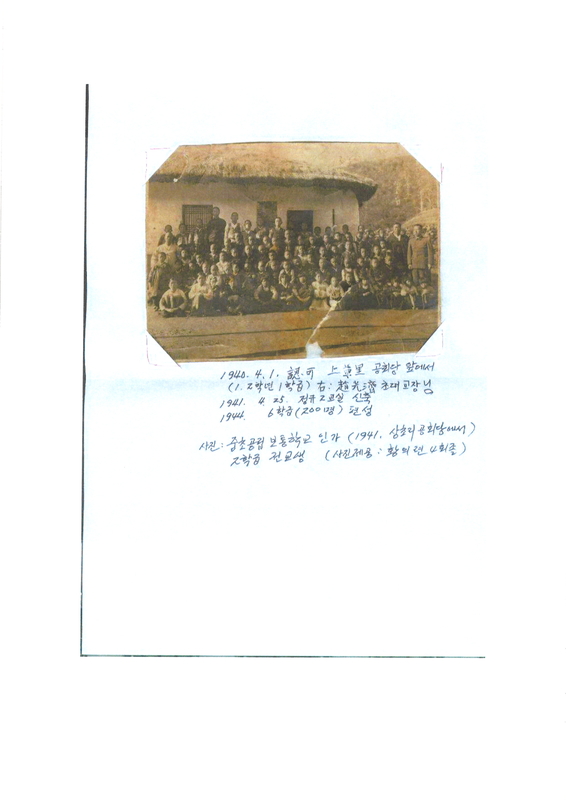 1940. 4. 1. 認可 上草里 공회당 앞에서
(1. 2학년 1학급) 右: 趙 초대교장님
1941. 4. 25. 정규 2교실 신축
1944. 6학급(200명) 편성
사진: 중초공립보통학교 인가 (1941, 상초리공회당에서)
2학급 전교생 (사진제공: 황의련 4회졸)